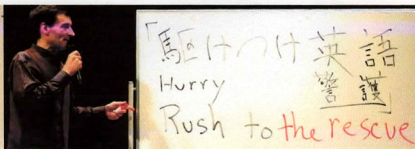 「駆けつけ英語
警護」
Hurry
Rush to the rescue